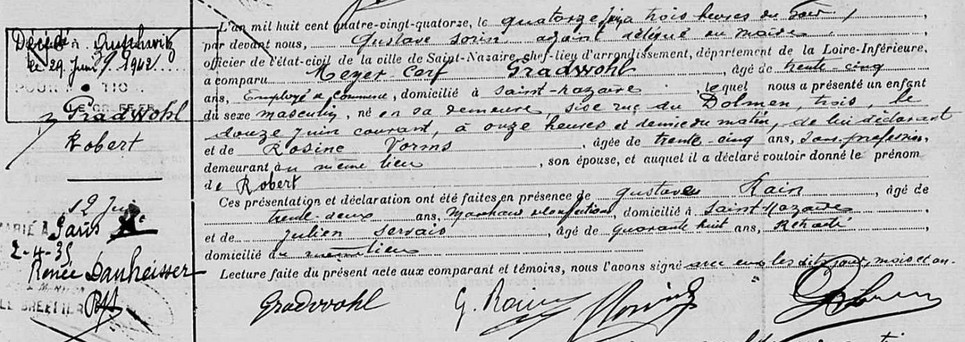 L'an mil huit cent quatre-vingt-quatorze, le quatorze juin à trois heures du soir,
par devant nous, Gustave Sorin adjoint délégué du maire
officier de l'état-civil de la ville de Saint-Nazaire, chef-lieu d'arrondissement, département de la Loire-Inférieure,
a comparu Meyer Cerf Gradwohl, âgé de trente cinq
ans, Employé de Commerce, domicilié à Saint-Nazaire, lequel nous a présenté un enfant
du sexe masculin, né en sa demeure sise rue du Dolmen, trois, le
douze juin courant, à onze heures et demie du matin, de lui déclarant
et de Rosine Vorms, âgée de trente-cinq ans, sans profession,
demeurant au même lieu, son épouse, et auquel il a déclaré vouloir donner le prénom
de Robert
Ces présentation et déclaration ont été faites en présence de Gustave, âgé de
trente-deux ans, domicilié à Saint-Nazaire
et de Julien Servais, âgé de quarante huit ans, Retraité
domicilié au même lieu
Lecture faite du présent acte aux comparant et témoins, nous l'avons signé avec eux les dits jour, mois et an.
Gradwohl
G.
Décédé à Auschwitz
le 29 Juin 1942
Gradwohl
Robert
12 Juin
MARIÉ A Paris
2-4-35
Renée Danheisser
LE GREFFIER